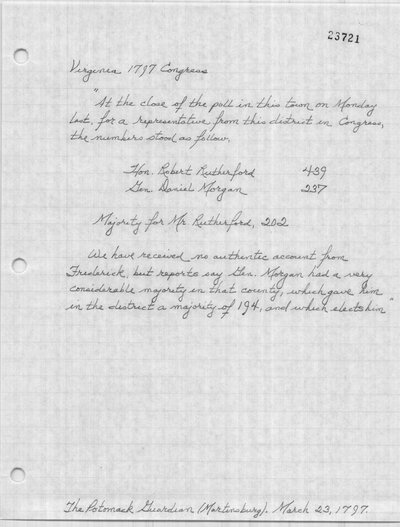 23721
Virginia 1797 Congress
"At the close of the poll in this town on Monday
last, for a representative from this district in Congress,
the numbers stood as follow.
Hon. Robert Rutherford 439
Gen. Daniel Morgan 237
Majority for Mr Rutherford, 202
We have received no authentic account from
Frederick, but reports say Gen. Morgan had a very
considerable majority in that county, which gave him
in the district a majority of 194, and which elects him"
The Potomack Guardian (Martinsburg). March 23, 1797.